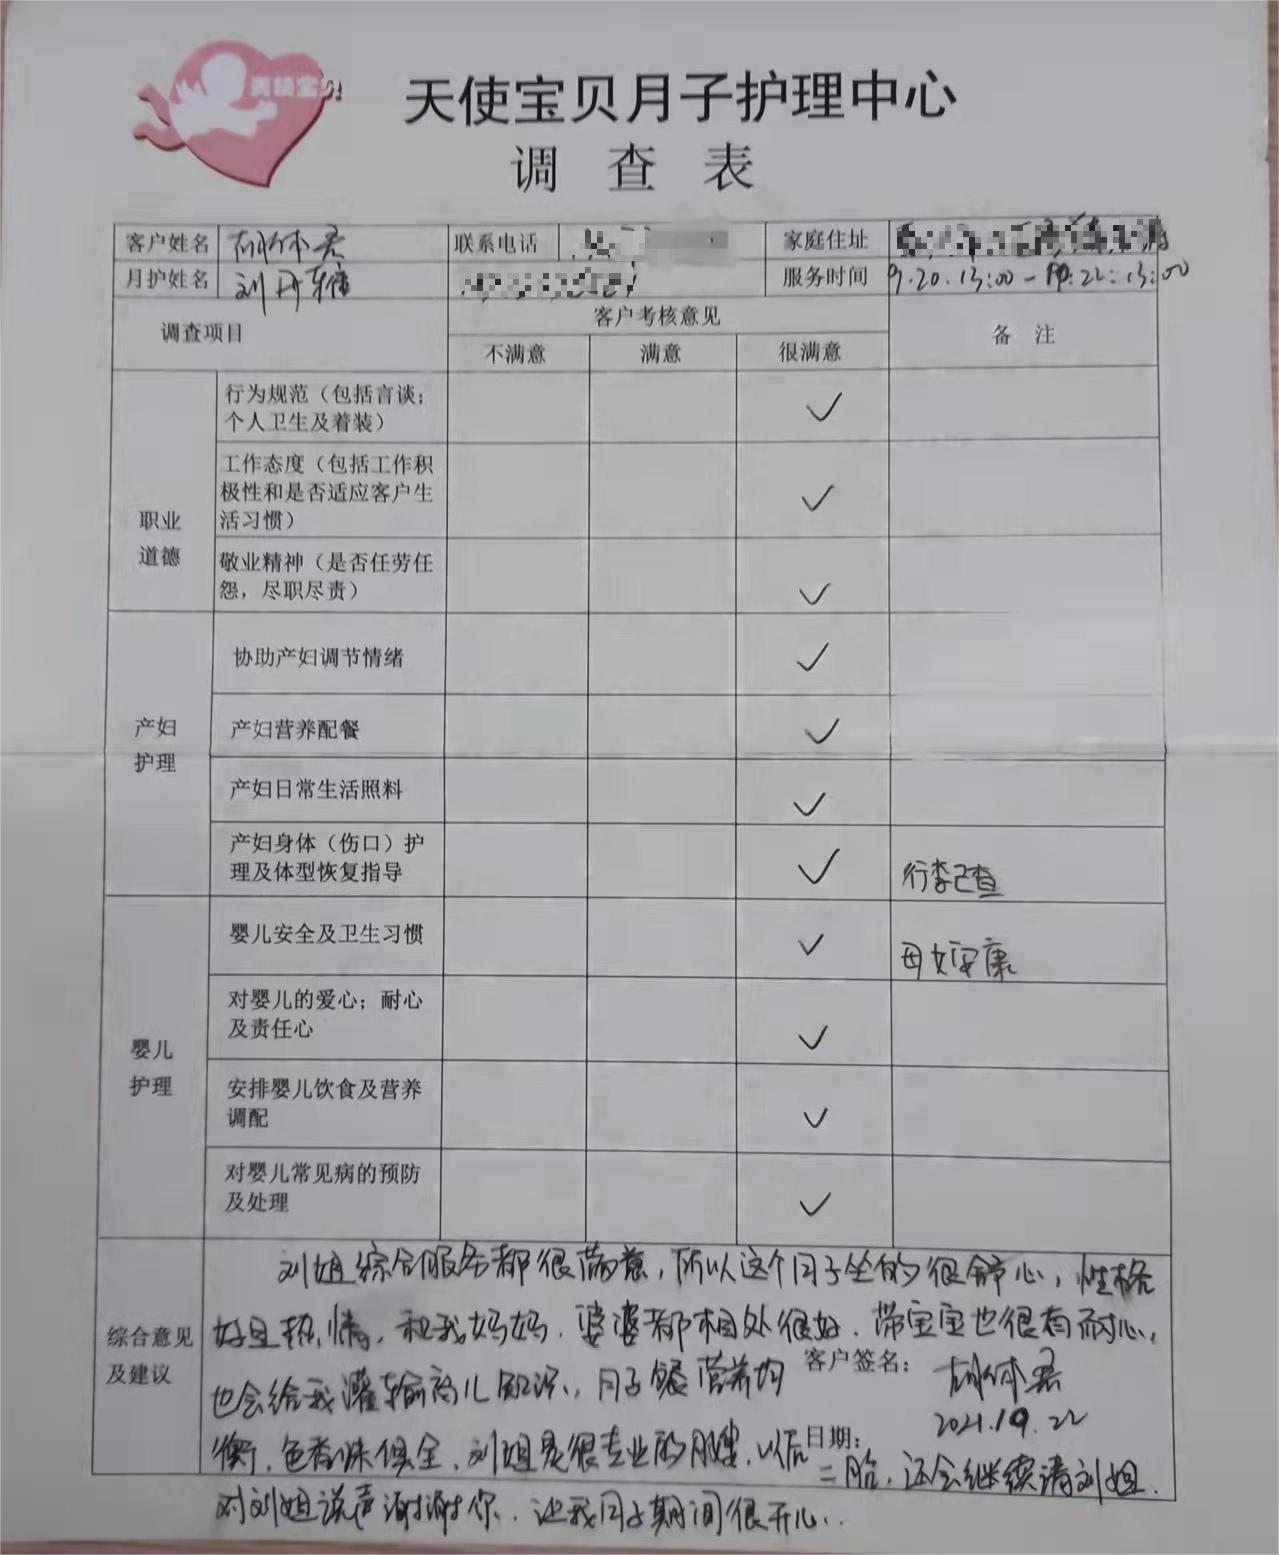 天使宝贝
天使宝贝月子护理中心
调 查 表
客户姓名 联系电话 家庭住址
月护姓名 刘丹雅 服务时间 9.20.13:00-10.22.13:00
调查项目 客户考核意见 备 注
不满意 满意 很满意
职业
道德
行为规范（包括言谈；
个人卫生及着装）
工作态度（包括工作积
极性和是否适应客户生
活习惯）
敬业精神（是否任劳任
怨，尽职尽责）
产妇
护理
协助产妇调节情绪
产妇营养配餐
产妇日常生活照料
产妇身体（伤口）护
理及体型恢复指导
行李已查
婴儿
护理
婴儿安全及卫生习惯
母女安康
对婴儿的爱心；耐心
及责任心
安排婴儿饮食及营养
调配
对婴儿常见病的预防
及处理
综合意见
及建议
刘姐综合服务都很满意，所以这个月子坐的很舒心，性格
好且热情，和我妈妈，婆婆都相处很好，带宝宝也很有耐心，
也会给我灌输育儿知识，月子餐营养均
衡，色香味俱全，刘姐是很专业的月嫂，以后
二胎，还会继续请刘姐.
对刘姐说声谢谢你，让我月子期间很开心..
客户签名：
日期：
2021.10.22